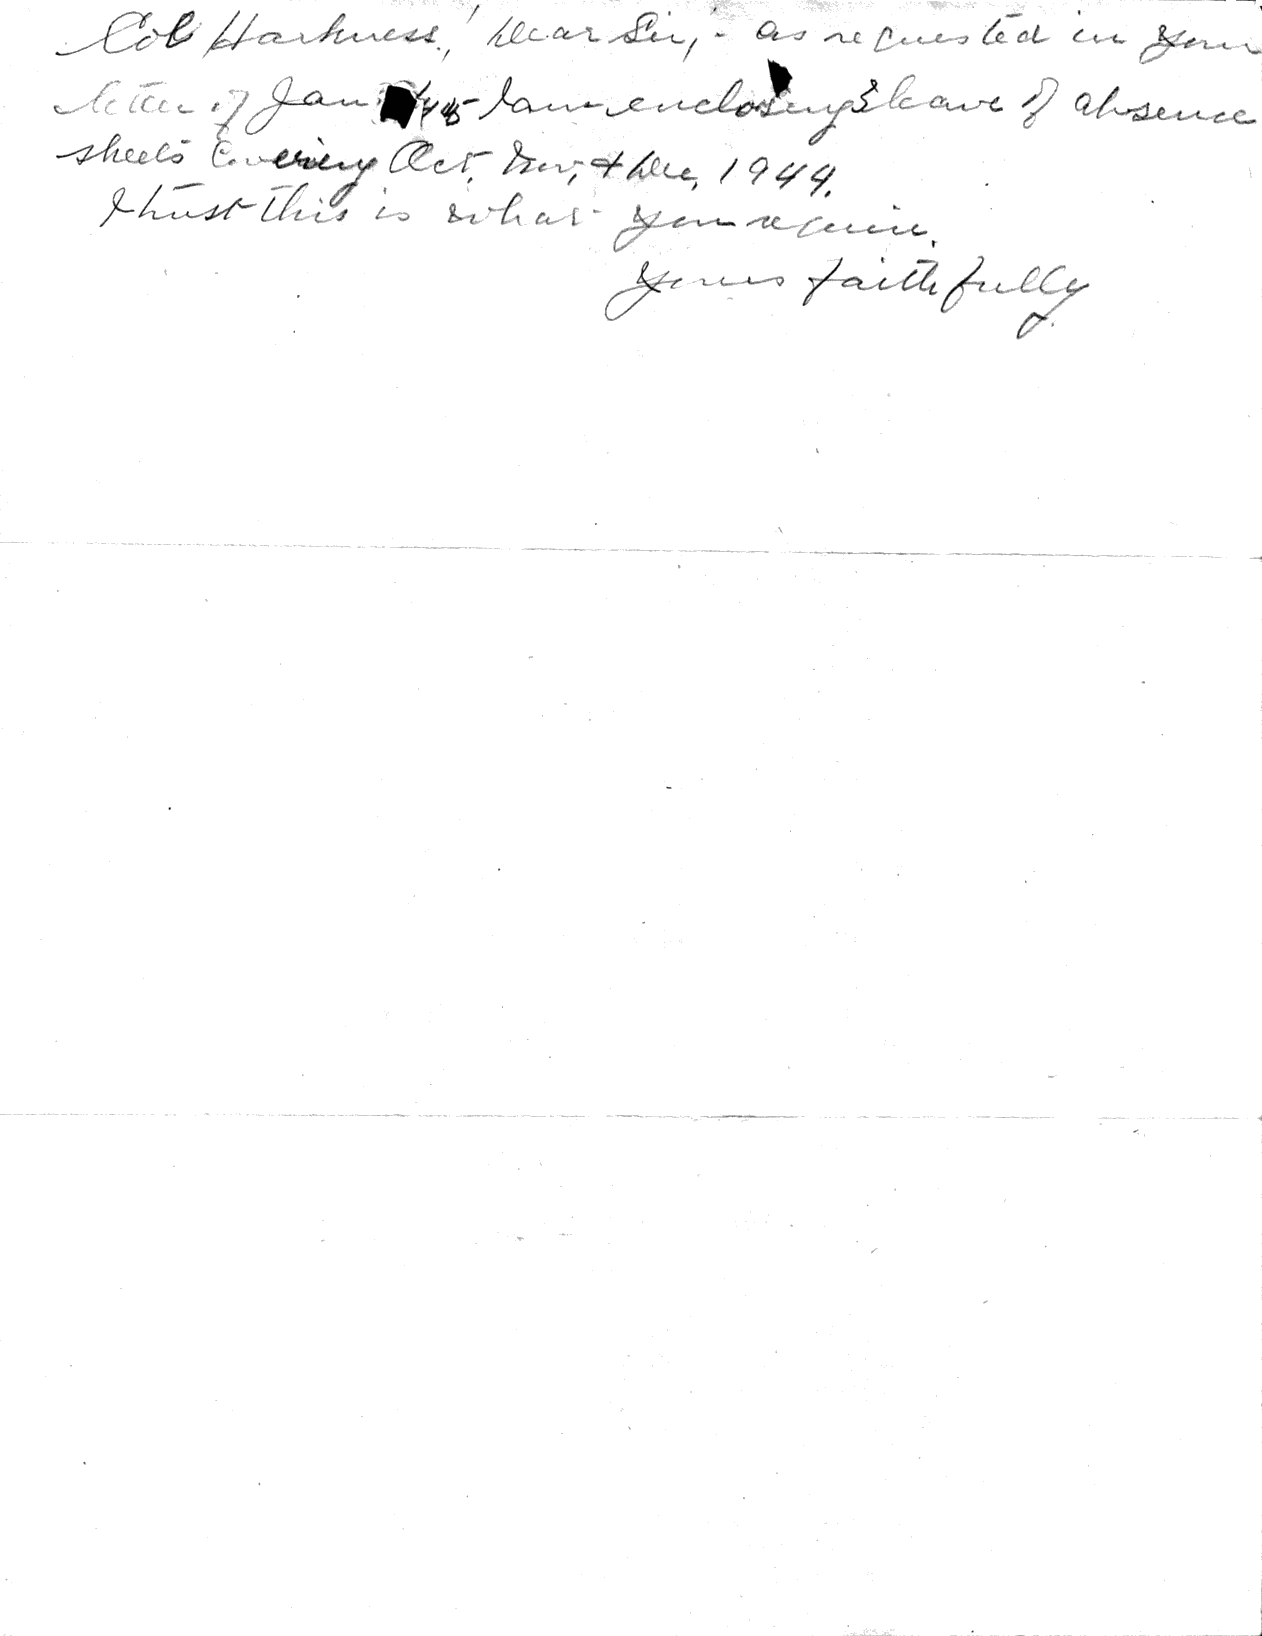 Col Harkness, Dear Sir, - as requested in your
letter of Jan /45 I am enclosing 3 leave of absence
sheets covering Oct, Nov, & Dec, 1944.
I trust this is what you require.
Yours faithfully